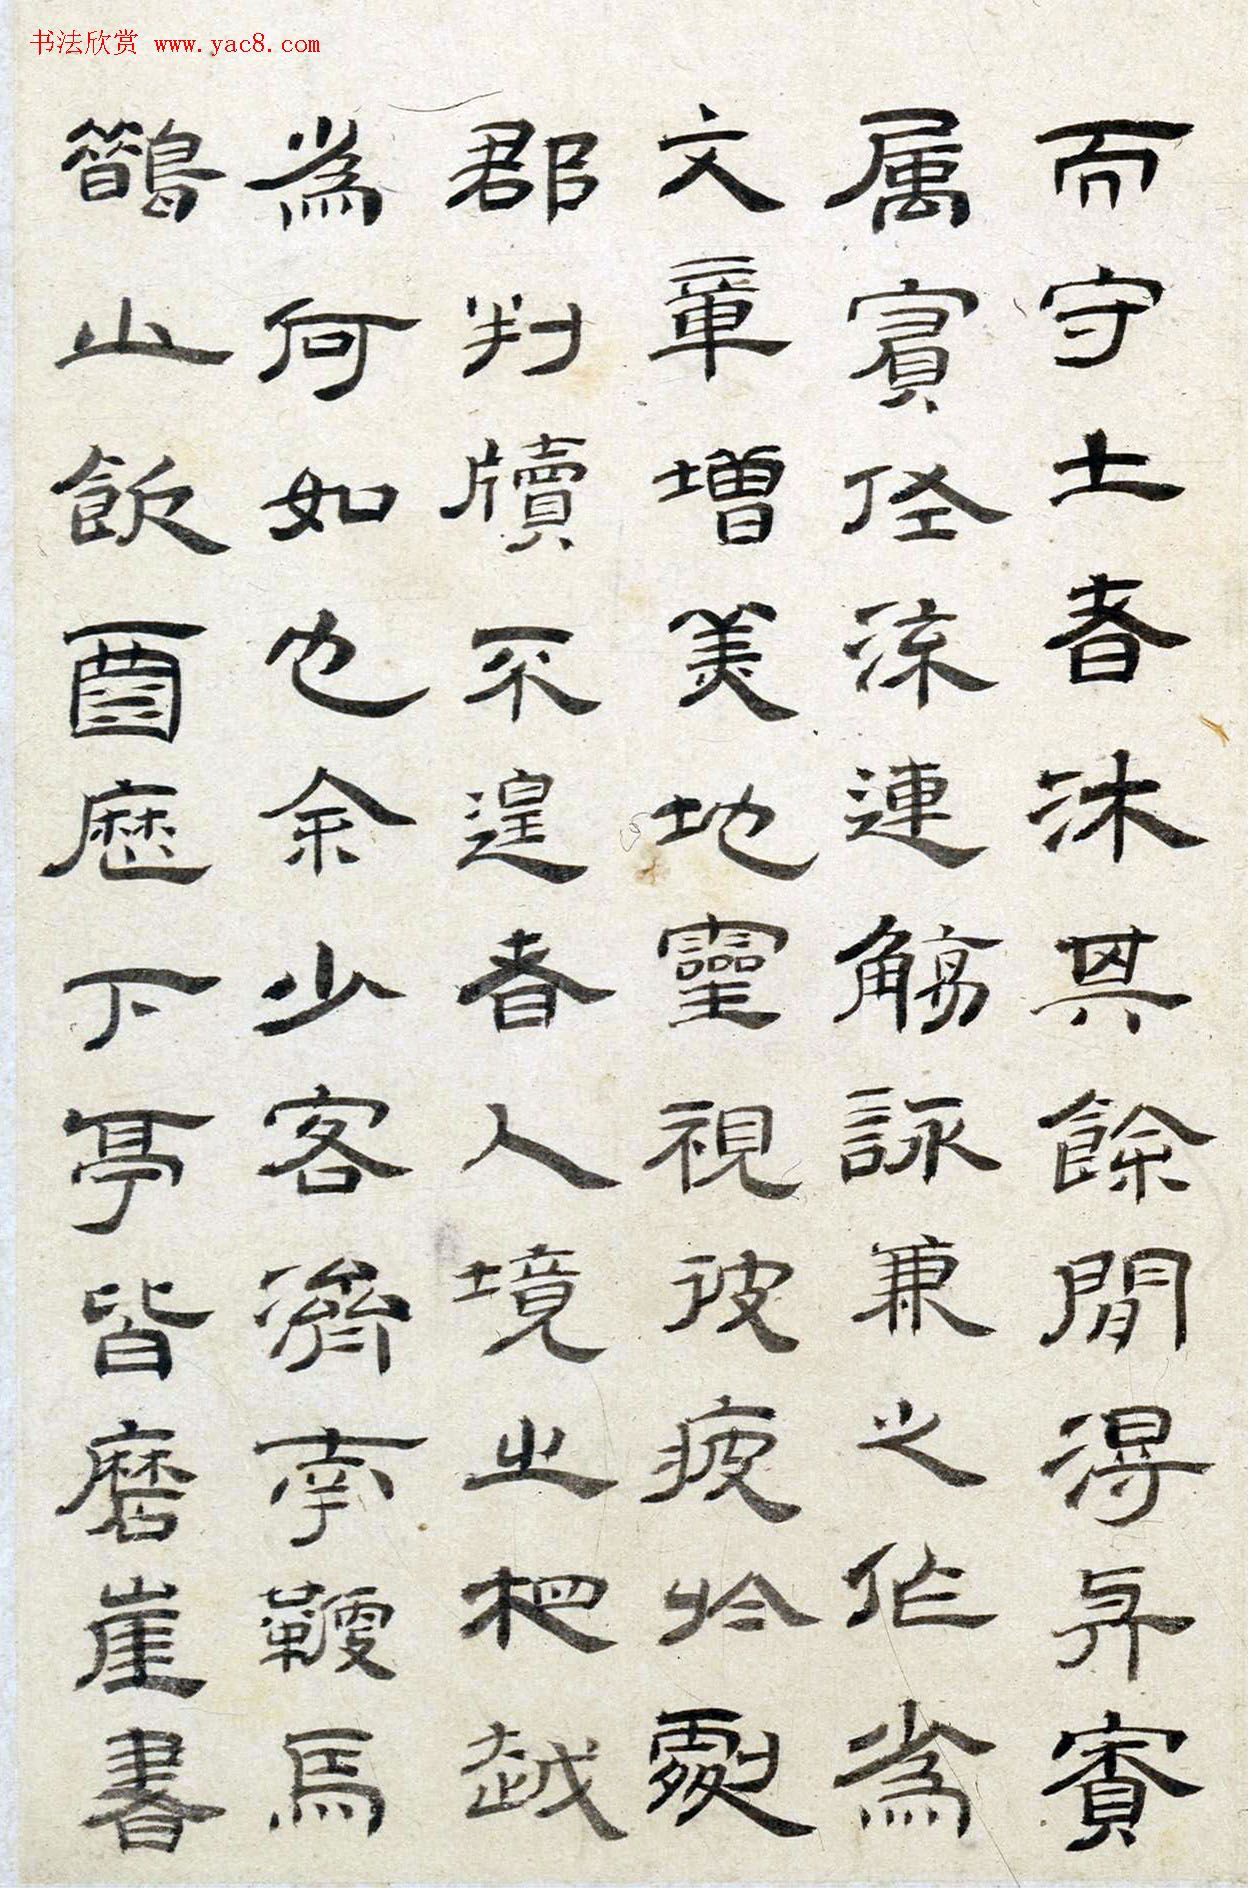 书法欣赏 www.yac8.com
而守土者沐其餘閒得与賓
属賓佐流連觴詠兼之作為
文章增美地靈視彼疲於劇
郡判牘不遑者人境之相越
為何如也余少客濟南鞍焉
鵲山飲酉歷下亭皆磨崖書